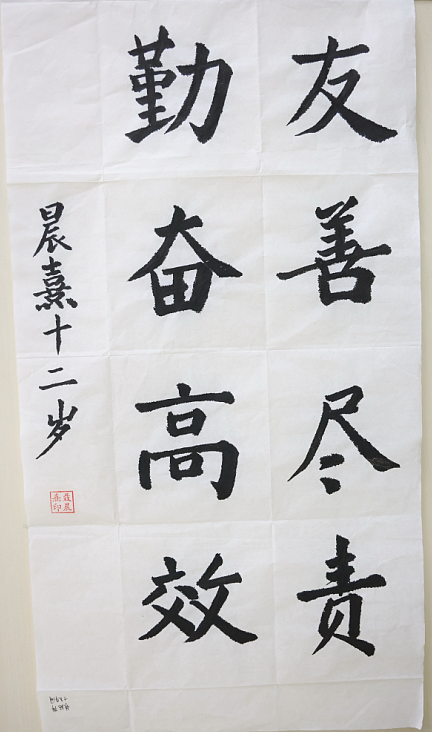 友善尽责
勤奋高效
晨熹十二岁